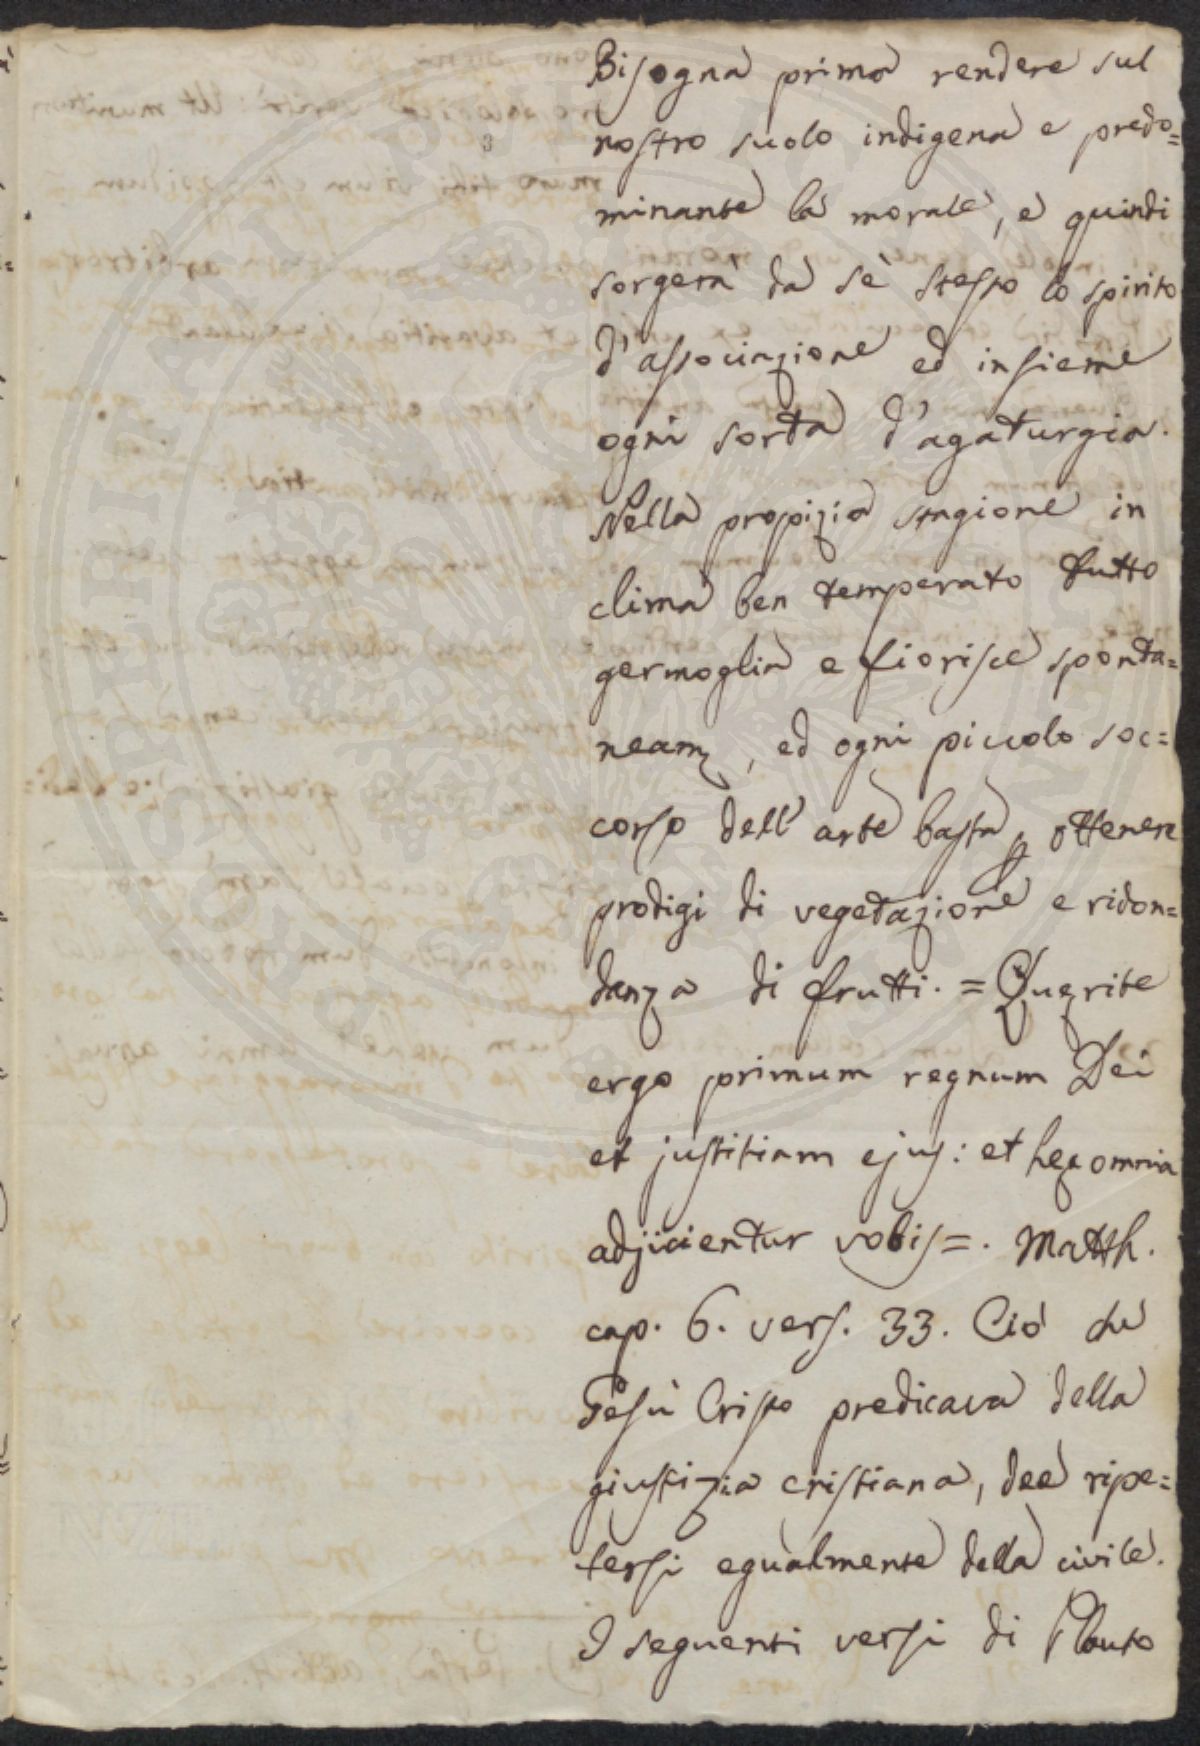 Bisogna prima rendere sul
nostro suolo indigena e predo=
minante la morale, e quindi
sorgerà da sè stesso lo spirito
d'associazione ed insieme
ogni sorta d'agaturgia.
Nella propizia stagione in
clima ben temperato tutto
germoglia e fiorisce sponta=
neam, ed ogni piccolo soc=
corso dell'arte basta p ottenere
prodigi di vegetazione e ridon=
danza di frutti. = Quęrite
ergo primum regnum Dei
et justitiam ejus: et hęc omnia
adjicientur vobis =. Matth.
cap. 6. vers. 33. Ciò che
Gesù Cristo predicava della
giustizia cristiana, dee ripe=
tersi egualmente della civile.
I seguenti versi di Plauto